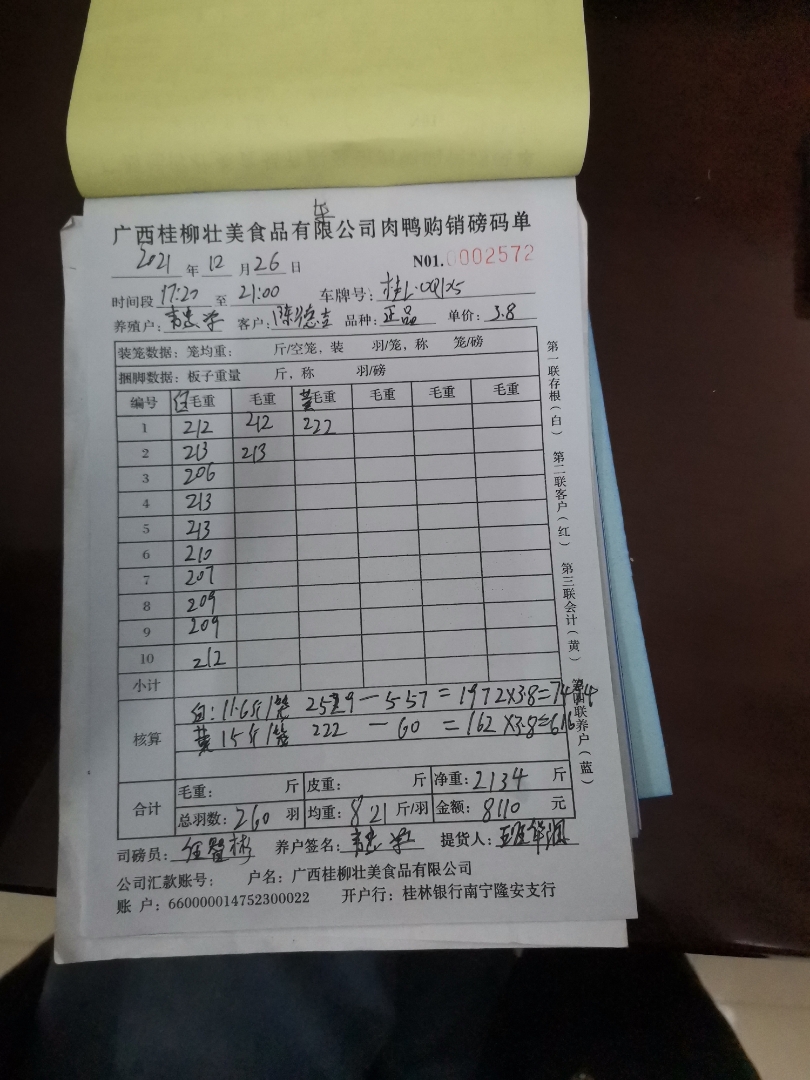 广西桂柳壮美食品有限公司肉鸭购销磅码单
2021 年 12 月 26 日 N01.0002572
时间段 17:20 至 21:00 车牌号：
养殖户： 客户： 品种：正品 单价：3.8
装笼数据：笼均重： 斤/空笼，装 羽/笼，称 笼/磅
捆脚数据：板子重量 斤，称 羽/磅
编号 白毛重 毛重 黄毛重 毛重 毛重 毛重
1 212 212 222
2 213 213
3 206
4 213
5 213
6 210
7 207
8 209
9 209
10 212
小计
核算
白：11.6斤/笼 2529 - 557 = 1972×3.8=7494
黄 15斤/笼 222 - 60 = 162×3.8=616
合计
毛重： 斤 皮重： 斤 净重：2134 斤
总羽数：260 羽 均重：8.21 斤/羽 金额：8110 元
司磅员： 养户签名： 提货人：
公司汇款账号： 户名：广西桂柳壮美食品有限公司
账 户：660000014752300022 开户行：桂林银行南宁隆安支行
第一联存根（白） 第二联客户（红） 第三联会计（黄） 第四联养户（蓝）